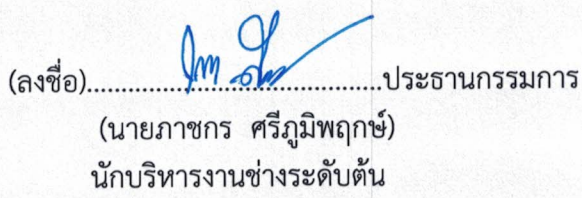 (ลงชื่อ)....................................ประธานกรรมการ
(นายภาชกร ศรีภูมิพฤกษ์)
นักบริหารงานช่างระดับต้น